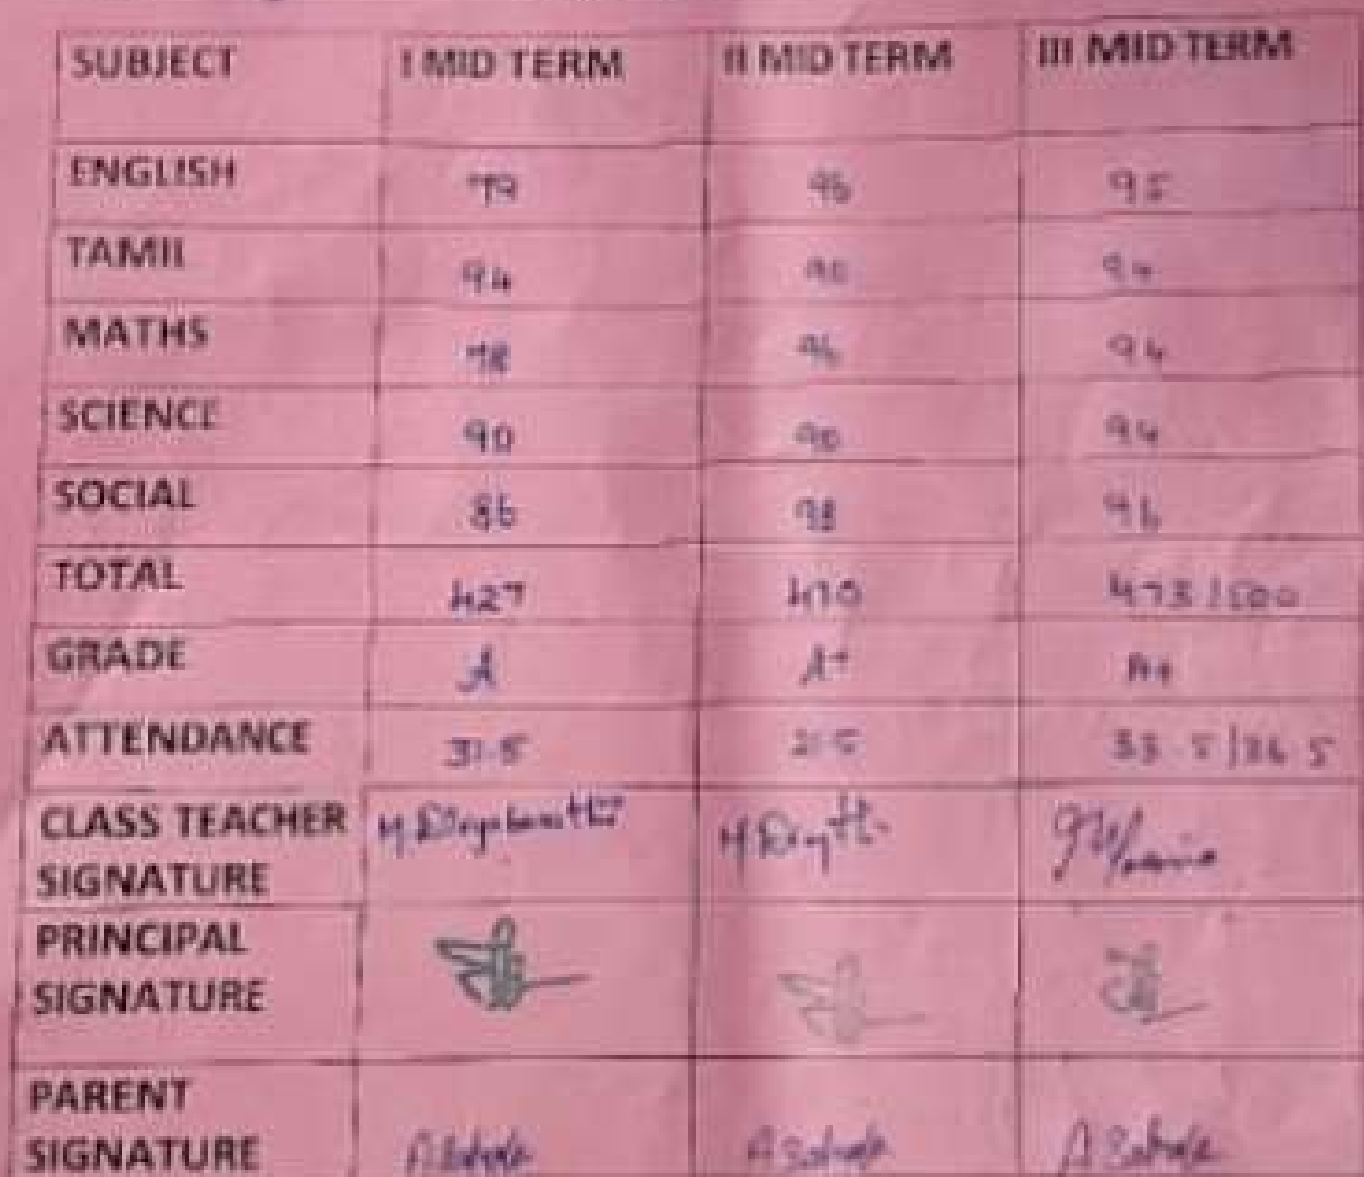 SUBJECT I MID TERM II MID TERM III MID TERM
ENGLISH 79 96 95
TAMIL 94 90 94
MATHS 78 96 94
SCIENCE 90 90 94
SOCIAL 86 98 96
TOTAL 427 470 473/500
GRADE A A+ A+
ATTENDANCE 31.5 21.5 33.5/36.5
CLASS TEACHER
SIGNATURE
PRINCIPAL
SIGNATURE
PARENT
SIGNATURE